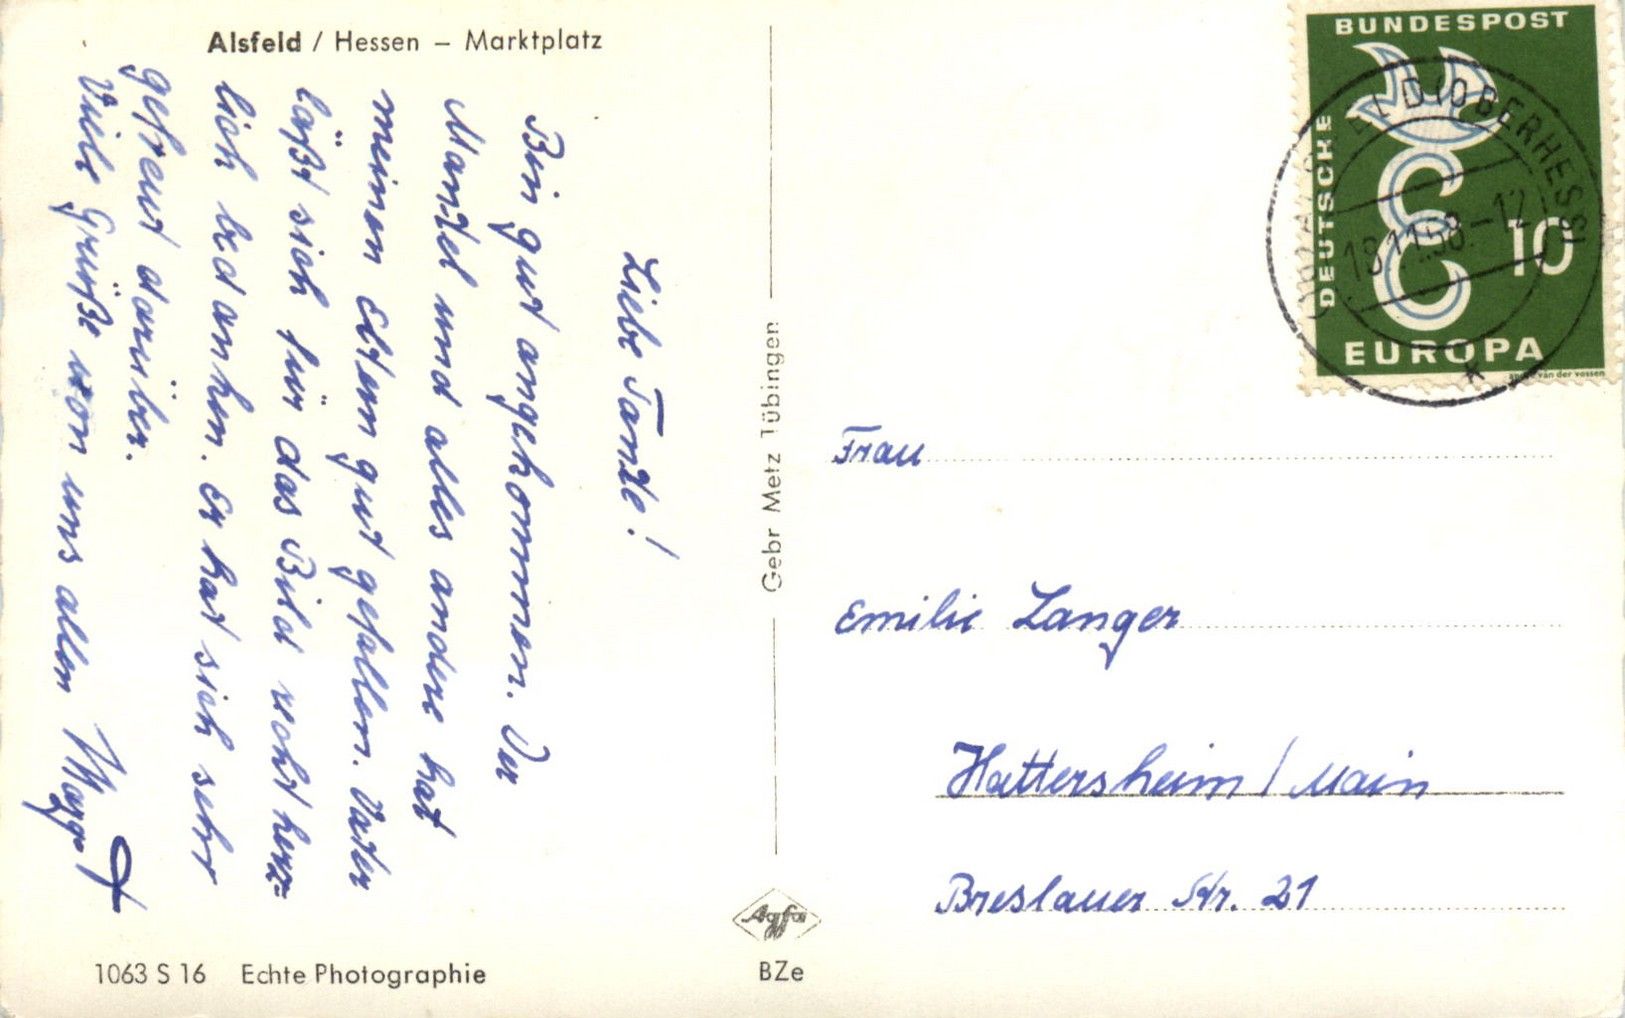 Alsfeld / Hessen – Marktplatz
Liebe Tante!
Bin gut angekommen. Der
Mantel und alles andere hat
meinen Eltern gut gefallen. Vater
läßt sich für das Bild recht herz=
lich bedanken. Er hat sich sehr
gefreut darüber.
Viele Grüße von uns allen
1063 S 16 Echte Photographie
Gebr Metz Tübingen
Agfa
BZe
DEUTSCHE
BUNDESPOST
10
EUROPA
van der vossen
(OBERHESS)
18.11.58.-12
Frau
Emilie Langer
Hattersheim / Main
Breslauer Str. 21